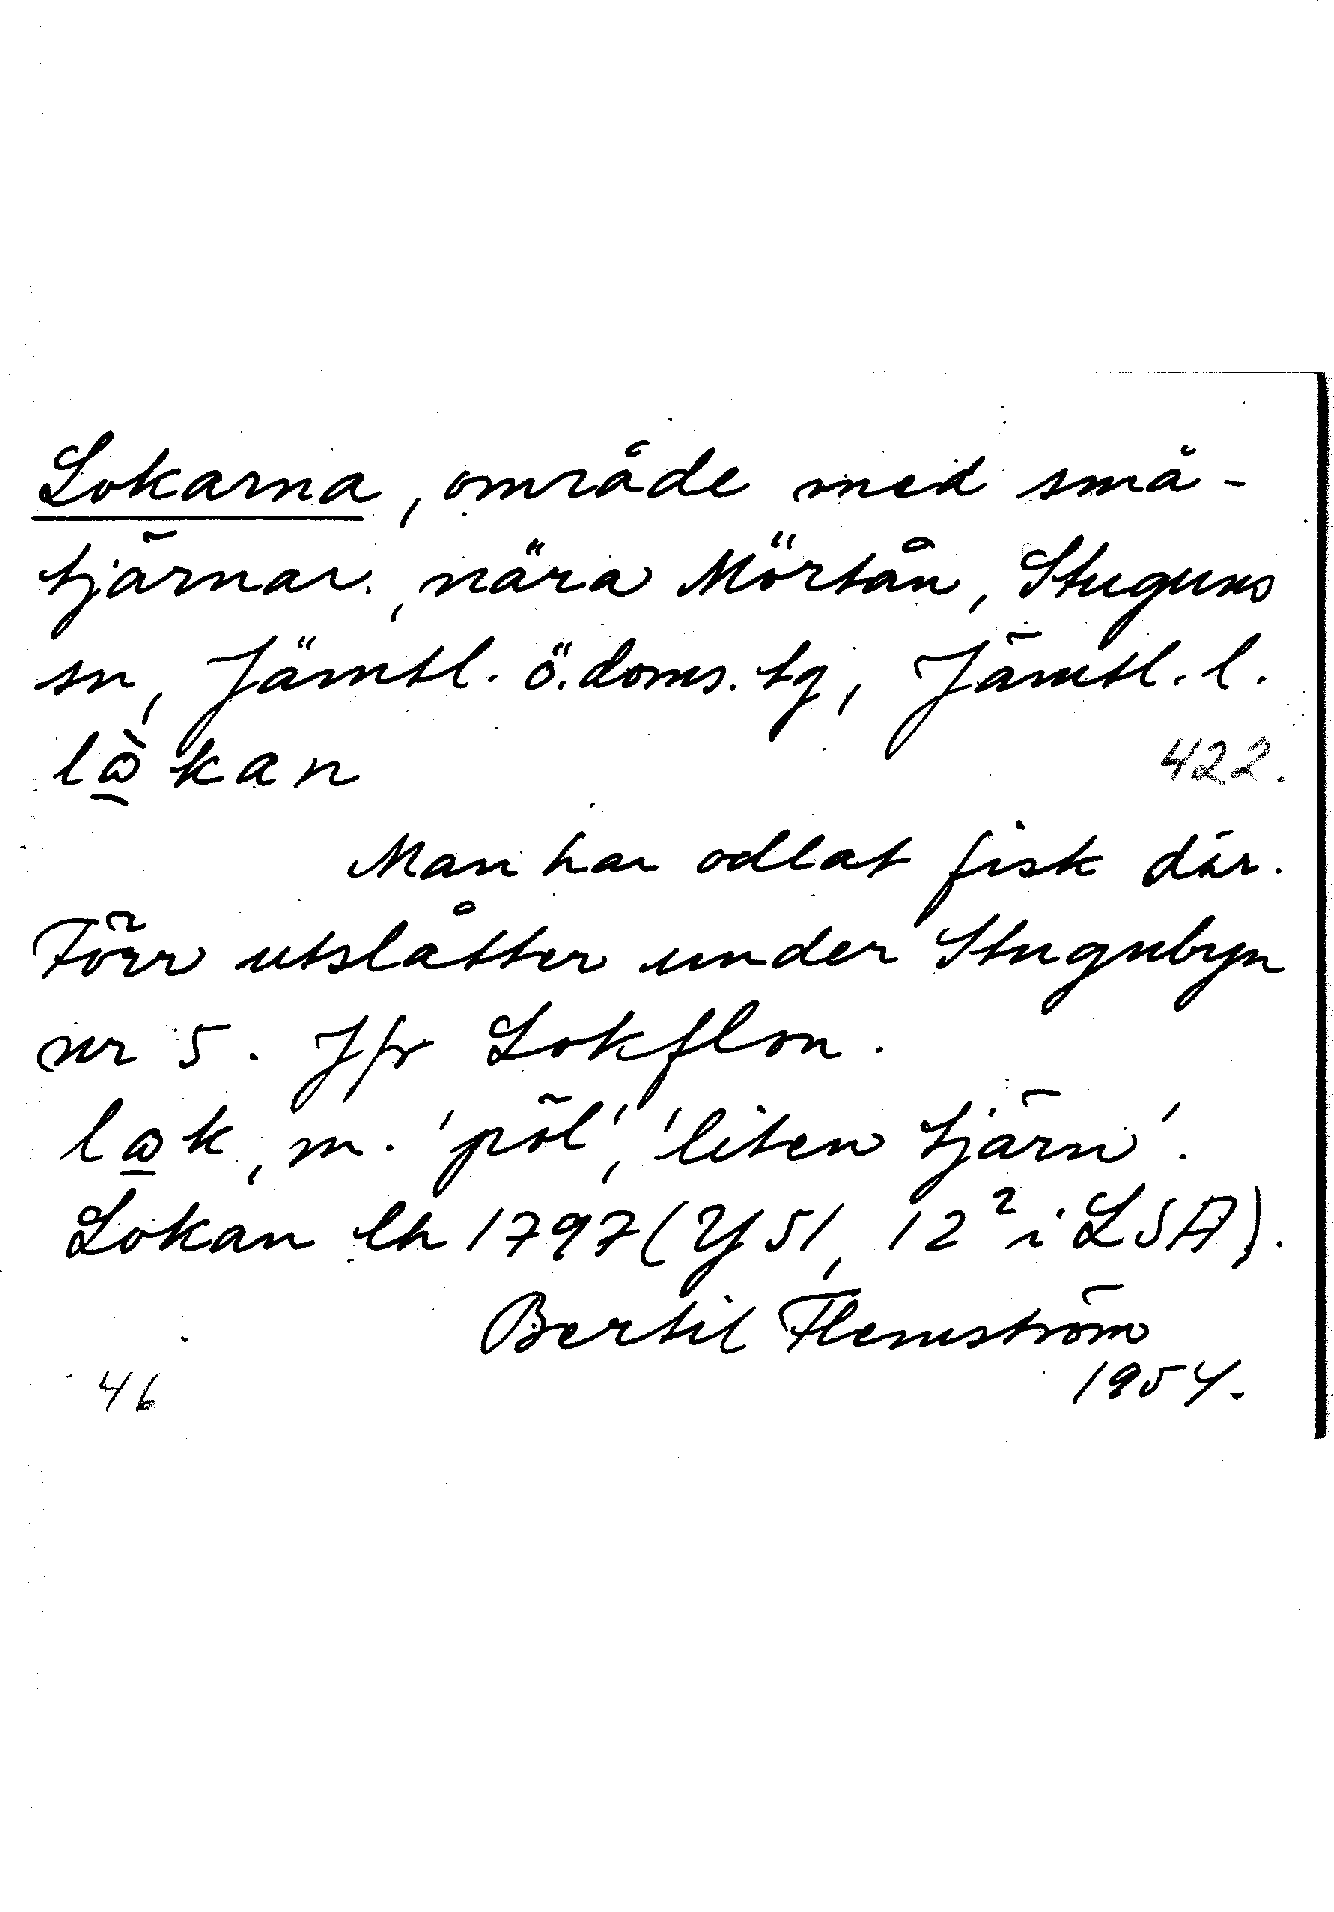 Lokarna, område med små-
tjärnar, nära Mörtån, Stuguns
sn, Jämtl. ö. doms. tg, Jämtl. l.
lɷ̀kan 422.
Man har odlat fisk där.
Förr utslåtter under Stugubyn
nr 5. Jfr Lokflon.
lɷk, m. 'pöl', 'liten tjärn'.
Lokan lh 1797 (Y 51, 12² i LSA).
Bertil Flemström
1954.
46